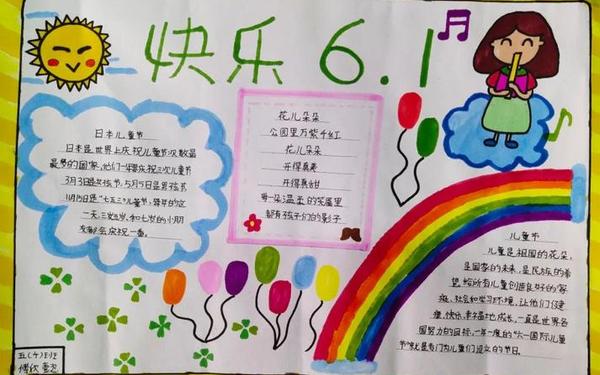 快乐 6.1
日本儿童节
日本是世界上庆祝儿童节次数最
多的国家,他们一年要庆祝三次儿童节
3月3日是女孩节,5月5日是男孩节
11月15日是"七五三"儿童节,
一天,三岁,五岁,和七岁的小朋
友都会庆祝一番。
花儿朵朵
公园里万紫千红
花儿朵朵
开得真美
开得真甜
每一朵温柔的笑屋里
都有孩子们的影子
儿童节
儿童是祖国的花朵,
是国家的未来,是民族的希
望,给所有儿童创造良好的家
庭、社会和学习环境,让他们健
康、快乐、幸福地成长,一直是世界各
国努力的目标,一年一度的"六一国际儿童
节"就是专门为儿童们设立的节日。
五(4)班